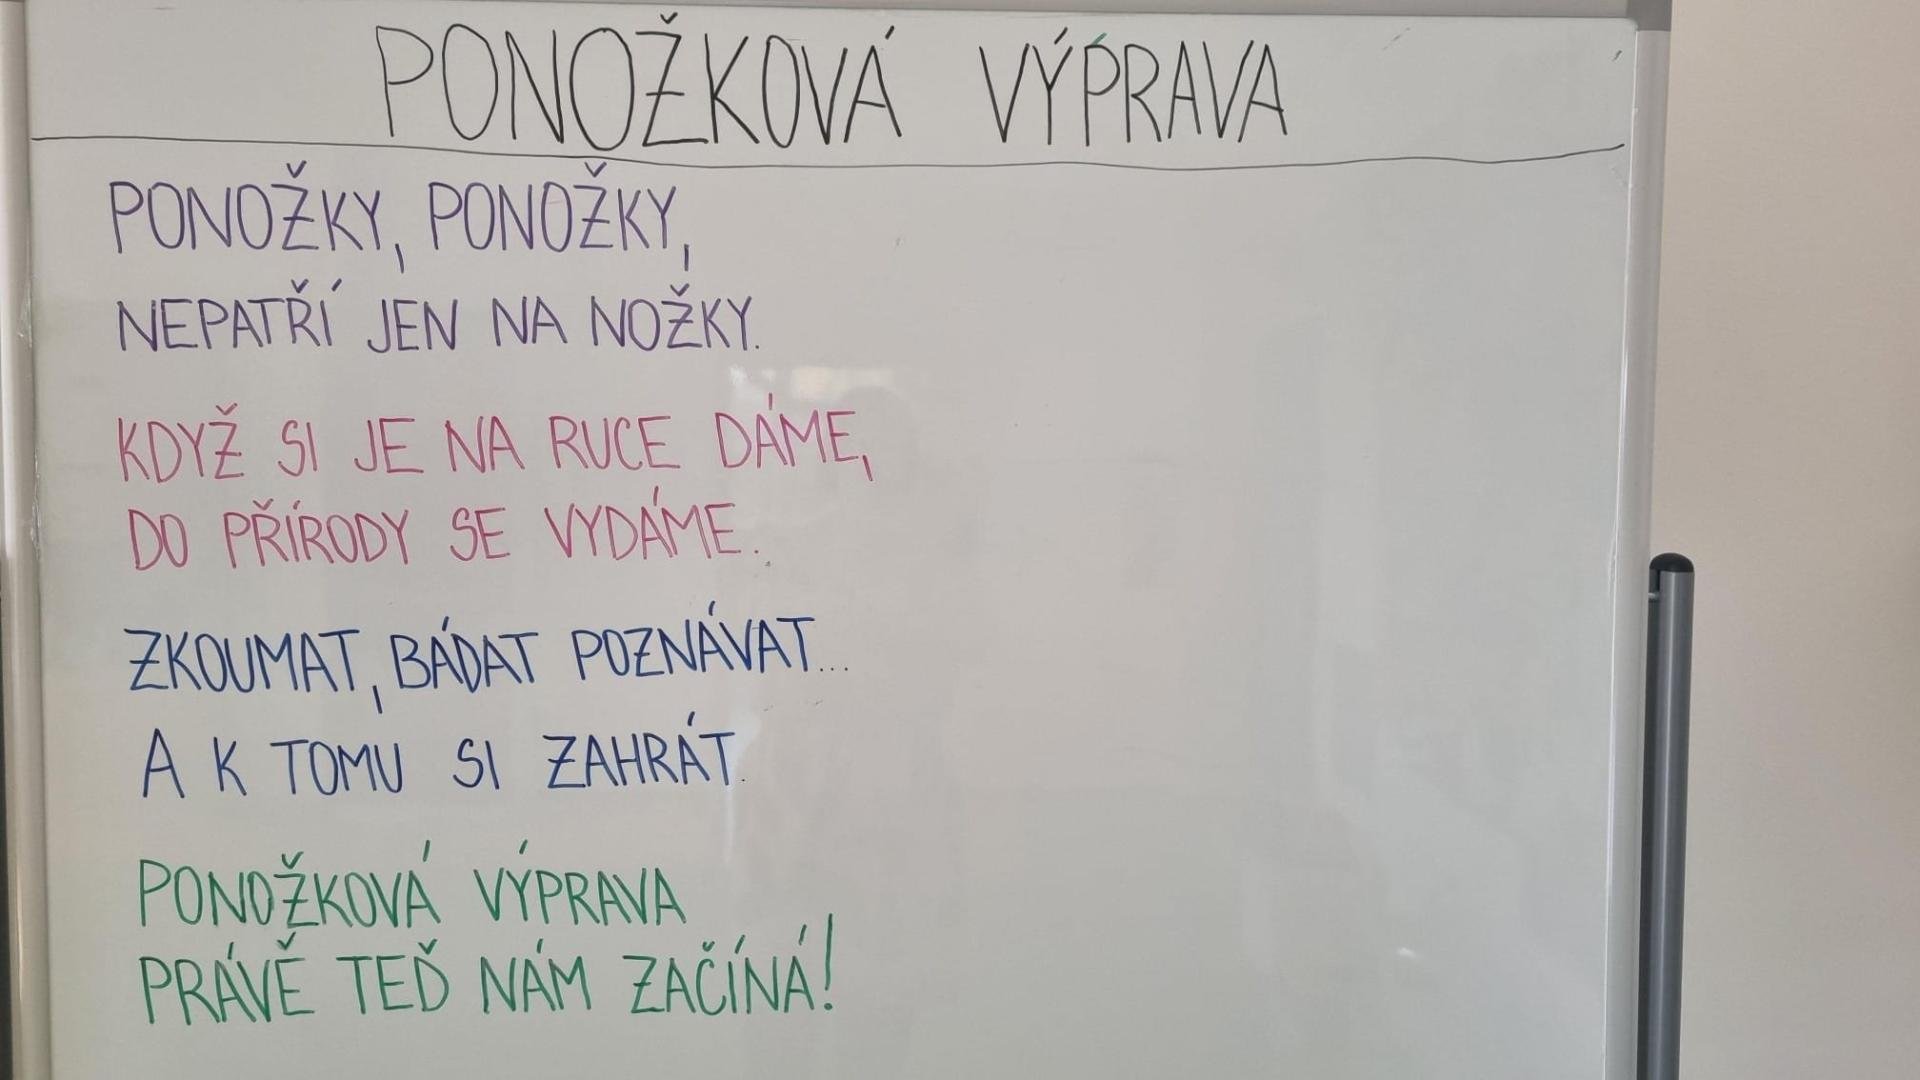 PONOŽKOVÁ VÝPRAVA
PONOŽKY, PONOŽKY,
NEPATŘÍ JEN NA NOŽKY.
KDYŽ SI JE NA RUCE DÁME,
DO PŘÍRODY SE VYDÁME.
ZKOUMAT, BÁDAT POZNÁVAT...
A K TOMU SI ZAHRÁT.
PONOŽKOVÁ VÝPRAVA
PRÁVĚ TEĎ NÁM ZAČÍNÁ!